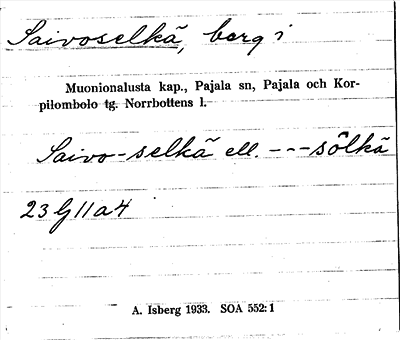 Saivoselkä, berg i
Muonionalusta kap., Pajala sn, Pajala och Kor-
pilombolo tg. Norrbottens l.
Saivo-selkä ell. ---sôlkä
23 G 11 a 4
A. Isberg 1933. SOA 552:1